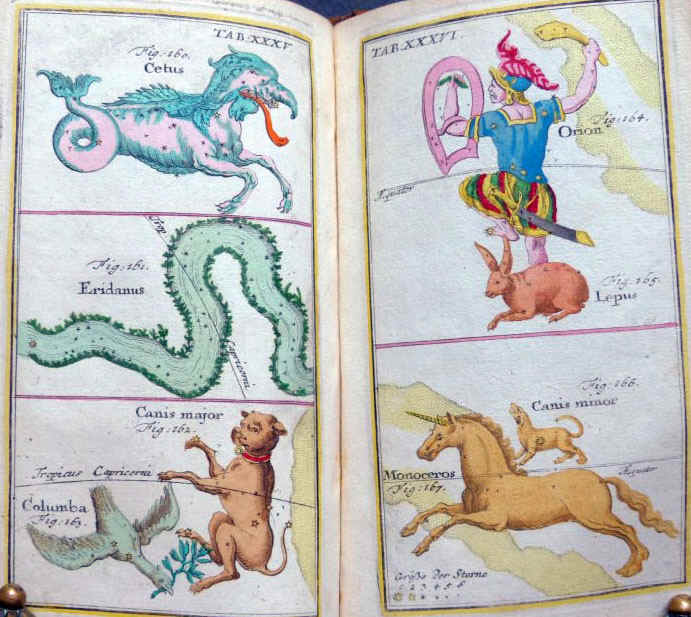 TAB. XXXV.
Fig: 160.
Cetus
Trop.
Fig: 161.
Eridanus
Capricorni
Canis major
Fig: 162.
Tropicus Capricorni
Columba
Fig: 163.
TAB. XXXVI.
Fig: 164.
Orion
Æquator
Fig: 165.
Lepus
Fig: 166.
Canis minor
Monoceros
Æquator
Fig: 167.
Größe der Sterne
1 2 3 4 5 6